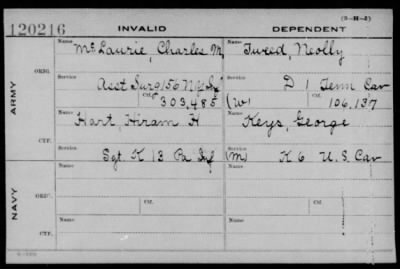 (3-H-2)
120216 INVALID DEPENDENT
Name Name
McLaurie, Charles M, Tweed, Neolly
ARMY
ORIG.
Service Ctf. Service Ctf.
Asst Surg 156 NY Inf D 1 Tenn Cav
303,485 (W) 106,137
Name Name
Hart, Hiram H Keys, George
CTF.
Service Service
Sgt. K 13 Pa Inf (M) K 6 U.S. Cav
NAVY
Name Ctf. Name Ctf.
ORIG.
Name Name
CTF.